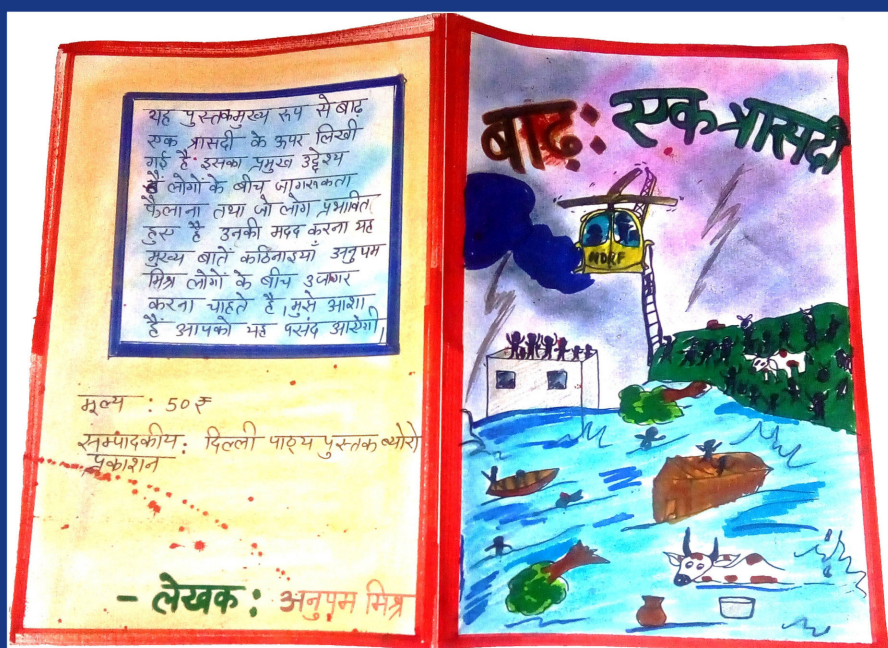 यह पुस्तकमुख्य रूप से बाढ़
एक त्रासदी के ऊपर लिखी
गई है। इसका प्रमुख उद्देश्य
हैं लोगों के बीच जागरूकता
फैलाना तथा जो लोग प्रभावित
हुए है उनकी मदद करना यह
मुख्य बातें कठिनाइयाँ अनुपम
मिश्र लोगों के बीच उजागर
करना चाहते है। मुझे आशा
हैं आपको यह पसंद आऐगी।
मूल्य : 50 ₹
सम्पादकीय: दिल्ली पाठ्य पुस्तक ब्योरो
प्रकाशन
- लेखक : अनुपम मिश्र
बाढ़: एक त्रासदी
NDRF